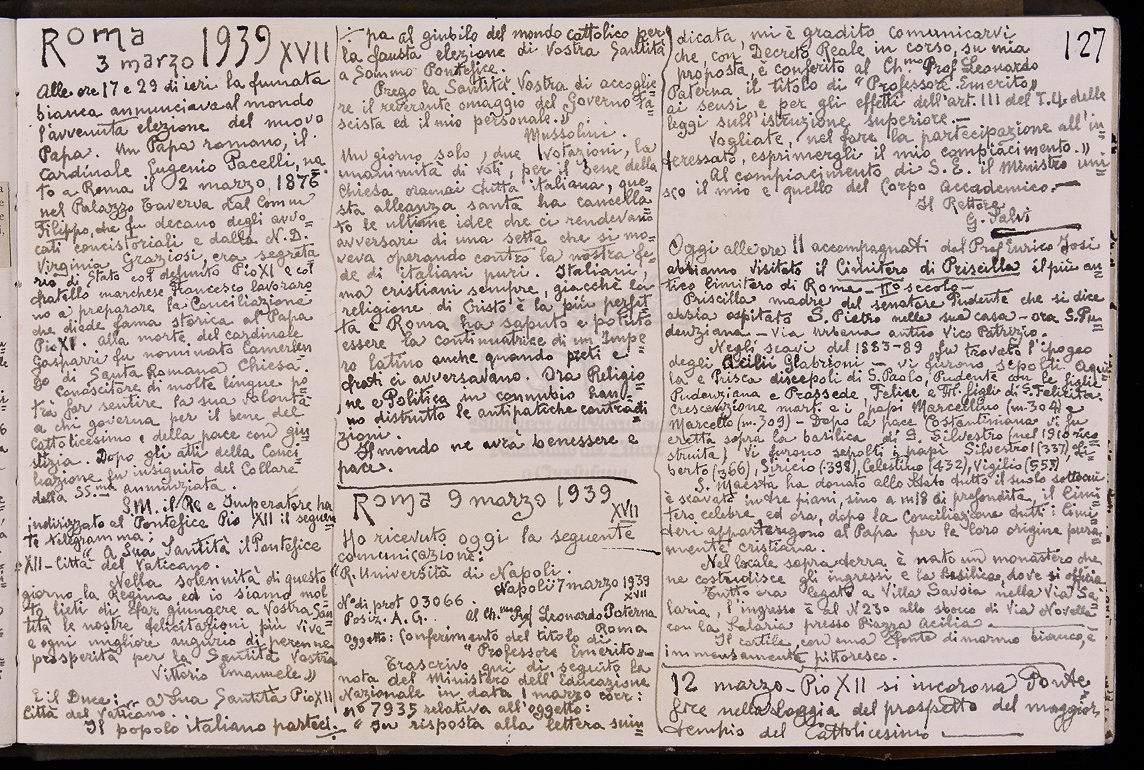 Roma 1939 XVII
3 marzo
Alle ore 17 e 29 di ieri la fumata
bianca annunciava al mondo
l'avvenuta elezione del nuovo
Papa. Un Papa romano, il
Cardinale Eugenio Pacelli, na=
to a Roma il 2 marzo, 1876
nel Palazzo Taverna dal Comm
Filippo, che fu decano degli avvo=
cati concistoriali e dalla N.D.
Virginia Graziosi, era segreta
rio di Stato col defunto Pio XI e col
fratello marchese Francesco lavoraro
no a preparare la Conciliazione
che diede fama storica al Papa
Pio XI. Alla morte del cardinale
Gasparri fu nominato Camerlen
go di Santa Romana Chiesa.
Conoscitore di molte lingue po
trà far sentire la sua volontà
a chi governa per il bene del
Cattolicesimo e della pace con giu
stizia. Dopo gli atti della Conci=
liazione fu insignito del Collare
della SS.ma annunziata.
S.M. il Re e Imperatore ha
indirizzato al Pontefice Pio XII il seguen
te telegramma:
" A Sua Santità il Pontefice
XII - Città del Vaticano.
Nella solennità di questo
giorno la Regina ed io siamo mol
to lieti di far giungere a Vostra San
tità le nostre felicitazioni più vive
e ogni migliore augurio di perenne
prosperità per la Santità Vostra
Vittorio Emanuele »
E il Duce: " a Sua Santità Pio XII
Città del Vaticano
Il popolo italiano parteci-
pa al giubilo del mondo cattolico per
la fausta elezione di Vostra Santità
a Sommo Pontefice.
Prego la Santità Vostra di accoglie
re il reverente omaggio del Governo Fa
scista ed il mio personale. »
Mussolini.
Un giorno solo, due votazioni, la
unanimità di voti, per il bene della
Chiesa oramai città italiana, que=
sta alleanza santa ha cancella
to le ultime idee che ci rendevano
avversare di una setta che si mo=
veva operando contro la nostra fe=
de di italiani puri. Italiani,
ma cristiani sempre, giacchè la
religione di Cristo è la più perfet
ta e Roma ha saputo e potuto
essere la continuatrice di un Impe
ro latino anche quando preti e
frati ci avversavano. Ora Religio
ne e Politica in connubio han=
no distrutto le antipatiche contradi
zioni.
Il mondo ne avrà benessere e
pace.
Roma 9 marzo 1939
XVII
Ho ricevuto oggi la seguente
comunicazione:
"R. Università di Napoli.
Napoli 7 marzo 1939
XVII
N° di prot 03066.
Posiz. A. G.. Al Ch.mo Prof Leonardo Paterna
Roma
Oggetto: Conferimento del titolo di
"Professore Emerito" -
Trascrivo qui di seguito la
nota del Ministero dell'Educazione
Nazionale in data 1 marzo corr:
n° 7935 relativa all'oggetto:
" In risposta alla lettera suin
127
dicata, mi è gradito comunicarvi
che, con Decreto Reale in corso, su mia
proposta, è conferito al Ch.mo Prof Leonardo
Paterna il titolo di "Professore Emerito"
ai sensi e per gli effetti dell'art. III del T.U. delle
leggi sull'istruzione superiore.-
Vogliate, nel fare la partecipazione all'in
teressato, esprimergli il mio compiacimento. »
Al compiacimento di S. E. il Ministro uni
sco il mio e quello del Corpo Accademico.-
Il Rettore
G. Salvi
Oggi alle ore 11 accompagnati dal Prof Enrico Josi
abbiamo visitato il Cimitero di Priscilla il più an
tico Cimitero di Roma - II° secolo -
Priscilla madre del senatore Pudente che si dice
abbia ospitato S. Pietro nella sua casa - ora S. Pu=
denziana. - Via Urbana antico Vico Patrizio.
Negli scavi del 1883-89 fu trovato l'ipogeo
degli Acilii Glabrioni - vi furono sepolti Aqui
la e Prisca discepoli di S. Paolo, Pudente con le figlie
Pudenziana e Prassede, Felice e III figli di S. Felicita.
Crescenzione mart: e i papi Marcellino (m-304) e
Marcello (m-309) - Dopo la pace Costantiniana vi fu
eretta sopra la basilica di S. Silvestro (nel 1910 rico
struita) Vi furono sepolti i papi Silvestro I (337) Li=
berto (366), Siricio (398), Celestino (432), Vigilio (555)
S. Maestà ha donato allo Stato tutto il suolo sottocui
è scavato in tre piani, sino a m 18 di profondità, il Cimi
tero celebre ed ora, dopo la Conciliazione tutti i Cimi
teri appartengono al Papa per la loro origine pura
mente cristiana.
Nel locale sopra terra è nato un monastero che
ne costudisce gli ingressi e la Basilica, dove si officia
Tutto era legato a Villa Savoia nella Via Sa=
laria, l'ingresso è al N 230 allo sbocco di Via Novella
con la Salaria presso Piazza Acilia.
Il cortile, con una fonte di marmo bianco, è
immensamente pittoresco.
12 marzo - Pio XII si incorona Ponte
fice nella Loggia del prospetto del maggior
tempio del Cattolicesimo